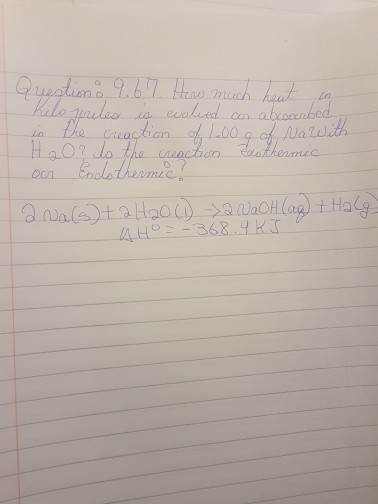 Question: 9.67 How much heat in
Kilojoules is evolved or absorbed
in the reaction of 1.00 g of Na with
H2O? Is the reaction Exothermic
or Endothermic?
2Na(s) + 2H2O(l) → 2NaOH(aq) + H2(g)
ΔH° = -368.4KJ